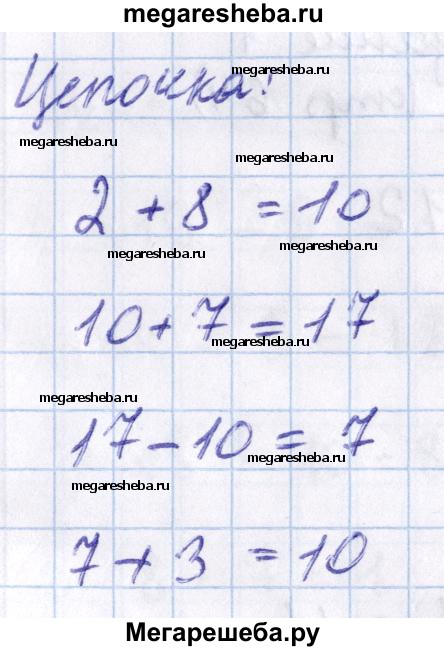 megaresheba.ru
Цепочка:
megaresheba.ru
megaresheba.ru
megaresheba.ru
2 + 8 = 10
megaresheba.ru
megaresheba.ru
10 + 7 = 17
megaresheba.ru
megaresheba.ru
17 - 10 = 7
megaresheba.ru
megaresheba.ru
7 + 3 = 10
Мегарешеба.ру